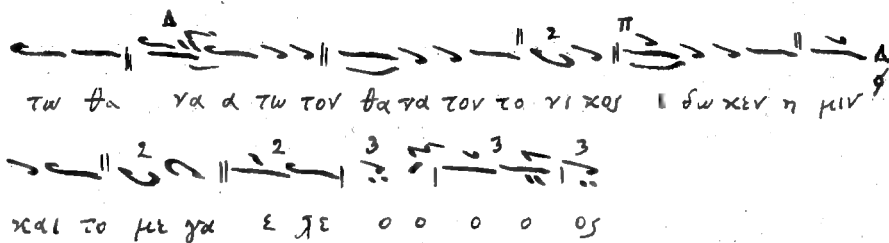 τω θα να α τω τον θα να τον το νι κος ι δω κεν η μιν
και το με γα ε λε ο ο ο ο ος